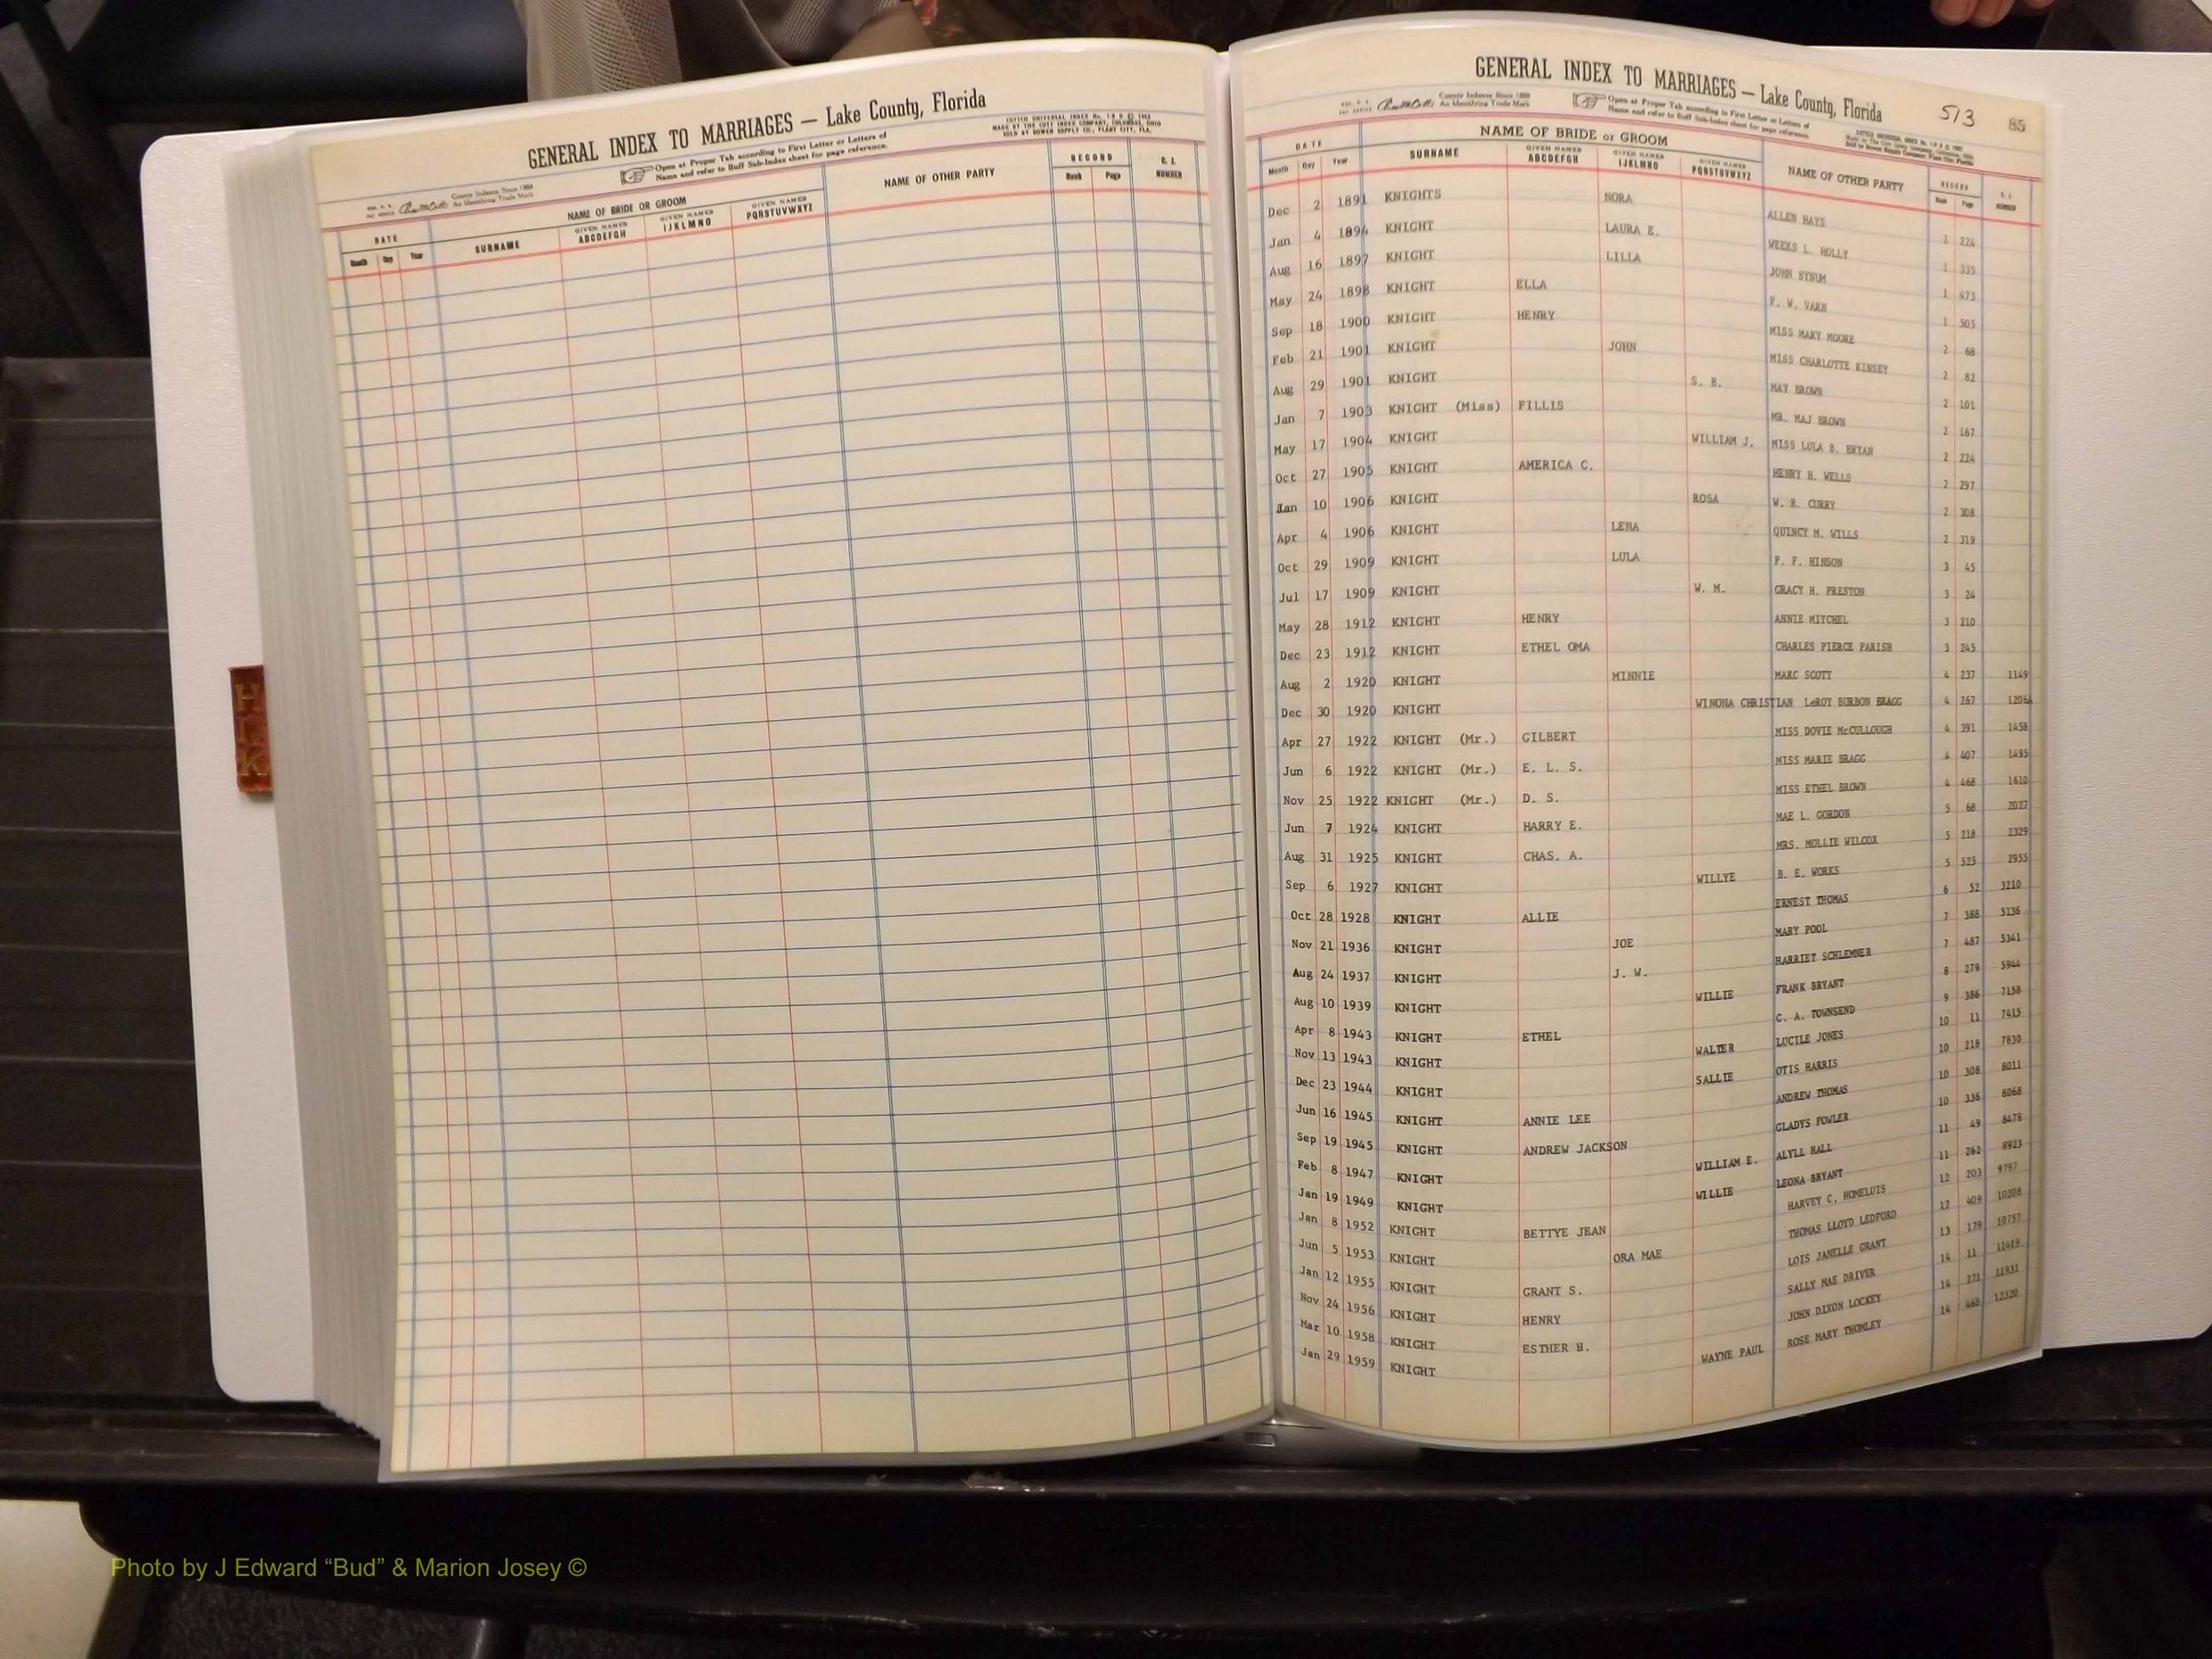 GENERAL INDEX TO MARRIAGES — Lake County, Florida
Open at Proper Tab according to First Letter or Letters of
Name and refer to Buff Sub-Index sheet for page reference.
County Indexes Since 1888
An Identifying Trade Mark
COTT UNIVERSAL INDEX
MADE BY THE COTT INDEX COMPANY, COLUMBUS, OHIO
SOLD BY BOWER SUPPLY CO., PLANT CITY, FLA.
DATE NAME OF BRIDE OR GROOM NAME OF OTHER PARTY RECORD
Month Day Year SURNAME GIVEN NAMES ABCDEFGH GIVEN NAMES IJKLMNO GIVEN NAMES PQRSTUVWXYZ Book Page NUMBER
H
I
K
GENERAL INDEX TO MARRIAGES — Lake County, Florida 513 85
County Indexes Since 1888
An Identifying Trade Mark
Open at Proper Tab according to First Letter or Letters of
Name and refer to Buff Sub-Index sheet for page reference.
DATE NAME OF BRIDE or GROOM NAME OF OTHER PARTY RECORD
Month Day Year SURNAME GIVEN NAMES ABCDEFGH GIVEN NAMES IJKLMNO GIVEN NAMES PQRSTUVWXYZ Book Page NUMBER
Dec 2 1891 KNIGHTS NORA ALLEN HAYS 1 224
Jan 4 1894 KNIGHT LAURA E. WEEKS L. HOLLY 1 335
Aug 16 1897 KNIGHT LILLA JOHN BYNUM 1 473
May 24 1898 KNIGHT ELLA F. W. VARN 1 505
Sep 18 1900 KNIGHT HENRY MISS MARY MOORE 2 68
Feb 21 1901 KNIGHT JOHN MISS CHARLOTTE KINSEY 2 82
Aug 29 1901 KNIGHT S. B. MAY BROWN 2 101
Jan 7 1903 KNIGHT (Miss) FILLIS MR. MAJ BROWN 2 167
May 17 1904 KNIGHT WILLIAM J. MISS LULA B. BRYAN 2 224
Oct 27 1905 KNIGHT AMERICA C. HENRY H. WELLS 2 297
Jan 10 1906 KNIGHT ROSA W. R. CURRY 2 308
Apr 4 1906 KNIGHT LENA QUINCY M. WILLS 2 319
Oct 29 1909 KNIGHT LULA P. F. HINSON 3 45
Jul 17 1909 KNIGHT W. M. GRACY H. PRESTON 3 24
May 28 1912 KNIGHT HENRY ANNIE MITCHEL 3 210
Dec 23 1912 KNIGHT ETHEL OMA CHARLES PIERCE PARISH 3 245
Aug 2 1920 KNIGHT MINNIE MARC SCOTT 4 237 1149
Dec 30 1920 KNIGHT WINONA CHRISTIAN LeROY BURBON BRAGG 4 267 1206A
Apr 27 1922 KNIGHT (Mr.) GILBERT MISS DOVIE McCULLOUGH 4 391 1458
Jun 6 1922 KNIGHT (Mr.) E. L. S. MISS MARIE BRAGG 4 407 1495
Nov 25 1922 KNIGHT (Mr.) D. S. MISS ETHEL BROWN 4 468 1610
Jun 7 1924 KNIGHT HARRY E. MAE L. GORDON 5 68 2027
Aug 31 1925 KNIGHT CHAS. A. MRS. MOLLIE WILCOX 5 218 2329
Sep 6 1927 KNIGHT WILLYE B. E. WORKS 5 525 2955
Oct 28 1928 KNIGHT ALLIE ERNEST THOMAS 6 52 3210
Nov 21 1936 KNIGHT JOE MARY POOL 7 388 5136
Aug 24 1937 KNIGHT J. W. HARRIET SCHLEMNER 7 487 5341
Aug 10 1939 KNIGHT WILLIE FRANK BRYANT 8 279 5944
Apr 8 1943 KNIGHT ETHEL C. A. TOWNSEND 9 386 7158
Nov 13 1943 KNIGHT WALTER LUCILE JONES 10 11 7415
Dec 23 1944 KNIGHT SALLIE OTIS HARRIS 10 218 7830
Jun 16 1945 KNIGHT ANNIE LEE ANDREW THOMAS 10 308 8011
Sep 19 1945 KNIGHT ANDREW JACKSON GLADYS FOWLER 10 336 8068
Feb 8 1947 KNIGHT WILLIAM E. ALYLL HALL 11 49 8478
Jan 19 1949 KNIGHT WILLIE LEONA BRYANT 11 262 8923
Jan 8 1952 KNIGHT BETTYE JEAN HARVEY C. HOMELUIS 12 203 9797
Jun 5 1953 KNIGHT ORA MAE THOMAS LLOYD LEDFORD 12 409 10208
Jan 12 1955 KNIGHT GRANT S. LOIS JANELLE GRANT 13 179 10757
Nov 24 1956 KNIGHT HENRY SALLY MAE DRIVER 14 11 11419
Mar 10 1958 KNIGHT ESTHER H. JOHN DIXON LOCKEY 14 271 11931
Jan 29 1959 KNIGHT WAYNE PAUL ROSE MARY THOMLEY 14 468 12320
Photo by J Edward “Bud” & Marion Josey ©